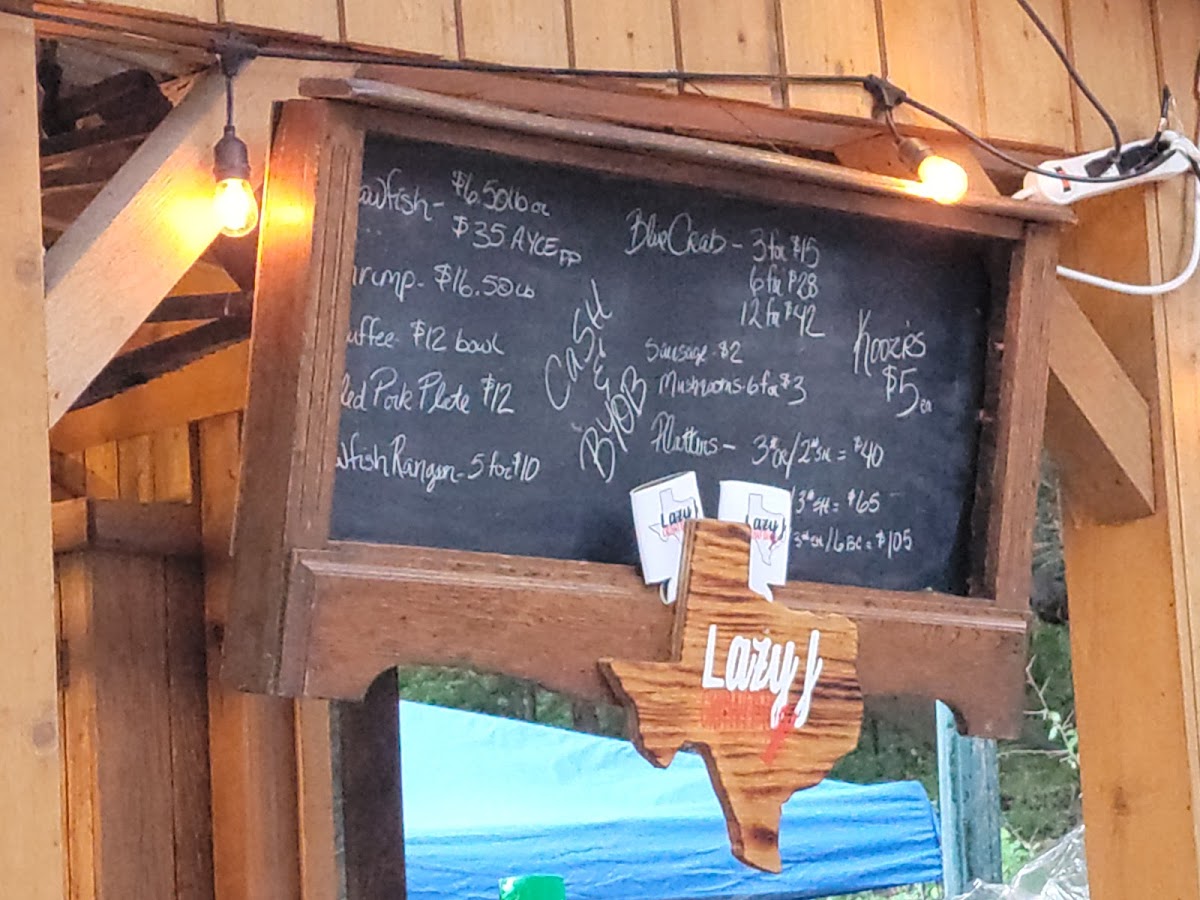 awfish - $6.50 lb or
$35 AYCE PP
hrimp - $16.50 LB
uffee - $12 bowl
led Pork Plate $12
wfish Rangoon - 5 for $10
CASH
&
BYOB
Blue Crab - 3 for $15
6 for $28
12 for $42
Sausage - $2
Mushrooms - 6 for $3
Koozies
$5 ea
Platters - 3# CR/2# SH = $40
/3# SH = $65
3# SH/6 BC = $105
Lazy J
Lazy J
Lazy J